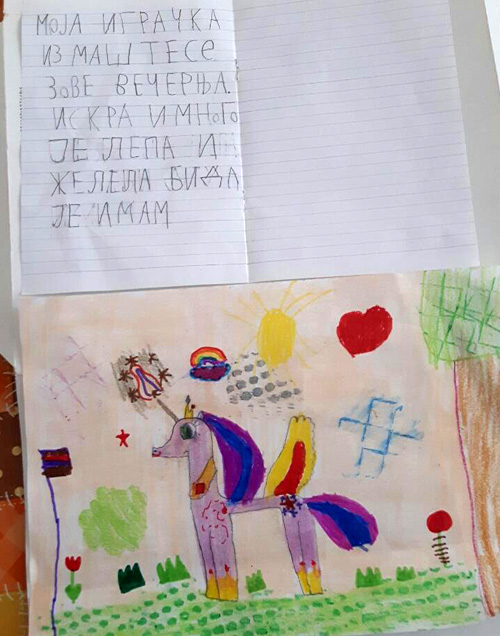 МОЈА ИГРАЧКА
ИЗ МАШТЕ СЕ
ЗОВЕ ВЕЧЕРЊА.
ИСКРА И МНОГО
ЈЕ ЛЕПА И
ЖЕЛЕЛА БИ ДА
ЈЕ ИМАМ